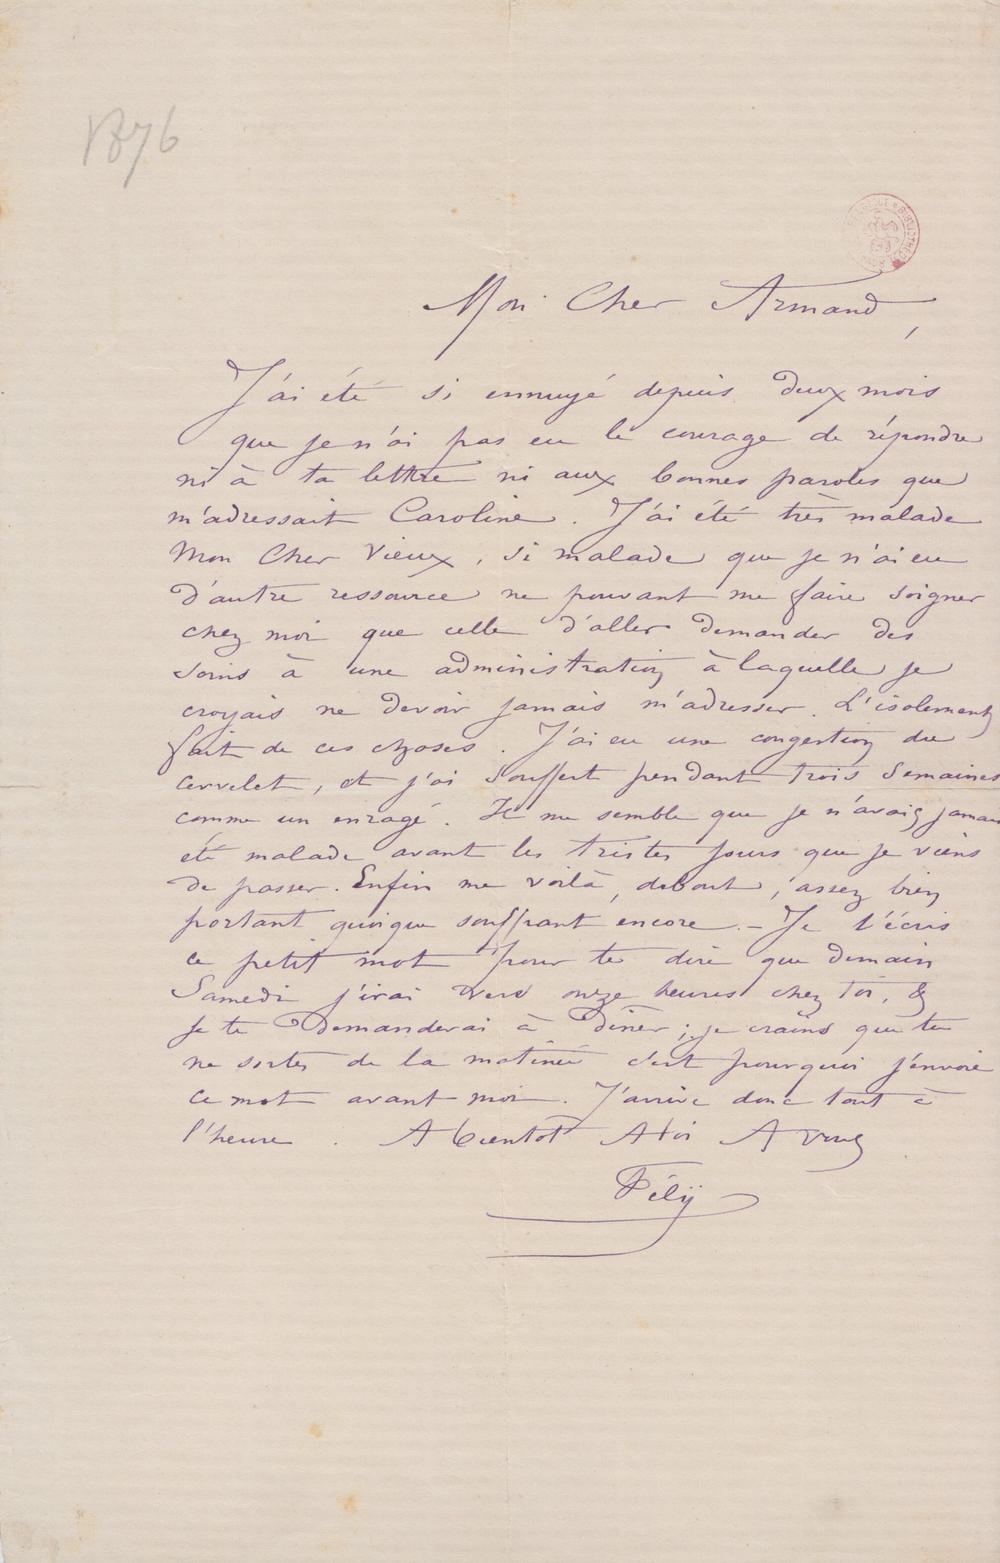 1876
Mon Cher Armand,
J'ai été si ennuyé depuis deux mois
que je n'ai pas eu le courage de répondre
ni à ta lettre ni aux bonnes paroles que
m'adressait Caroline. J'ai été très malade
Mon Cher Vieux, si malade que je n'ai eu
d'autre ressource ne pouvant me faire soigner
chez moi que celle d'aller demander des
soins à une administration à laquelle je
croyais ne devoir jamais m'adresser. L'isolement
fait de ces choses. J'ai eu une congestion du
cervelet, et j'ai souffert pendant trois Semaines
comme un enragé. Il me semble que je n'avais jamais
été malade avant les tristes jours que je viens
de passer. Enfin me voilà, debout, assez bien
portant quoique souffrant encore. – Je t'écris
ce petit mot pour te dire que demain
Samedi j'irai vers onze heures chez toi, &
je te demanderai à dîner; je crains que tu
ne sortes de la matinée c'est pourquoi j'envoie
ce mot avant moi. J'arrive donc tout à
l'heure. A bientot A toi A vous
Fély